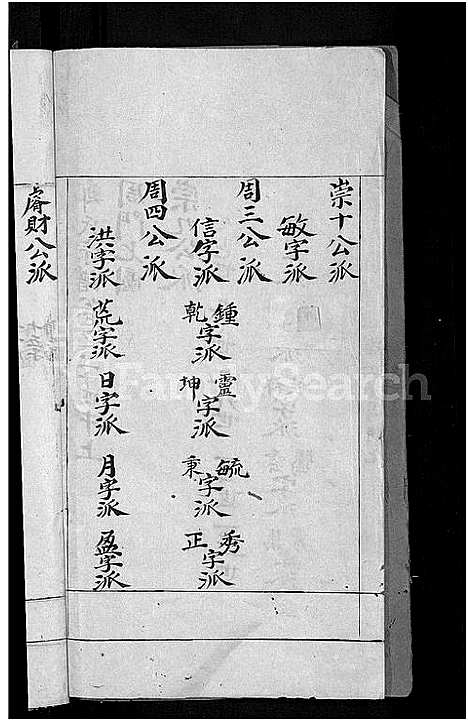 崇十公派
敏字派
周三公派
信字派
鍾乾字派
靈坤字派
毓秉字派
秀正字派
周四公派
洪字派
荒字派
日字派
月字派
盈字派
財公派
FamilySearch